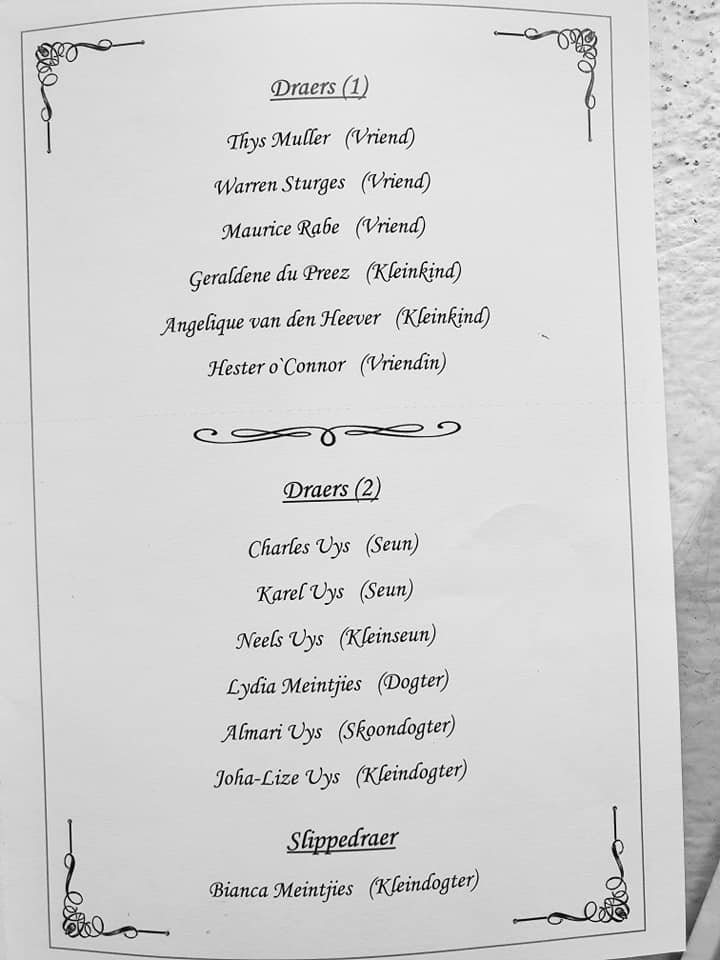 Draers (1)
Thys Muller (Vriend)
Warren Sturges (Vriend)
Maurice Rabe (Vriend)
Geraldene du Preez (Kleinkind)
Angelique van den Heever (Kleinkind)
Hester o`Connor (Vriendin)
Draers (2)
Charles Uys (Seun)
Karel Uys (Seun)
Neels Uys (Kleinseun)
Lydia Meintjies (Dogter)
Almari Uys (Skoondogter)
Joha-Lize Uys (Kleindogter)
Slippedraer
Bianca Meintjies (Kleindogter)